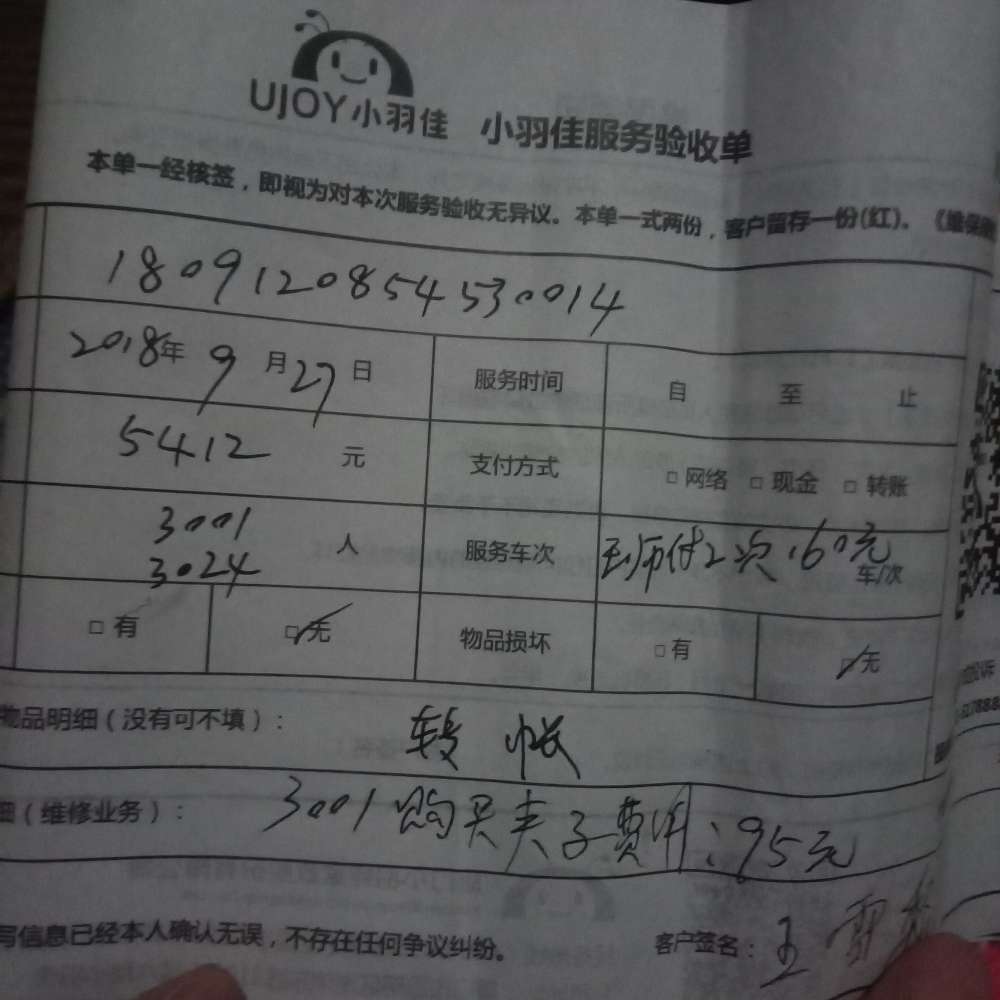 UJOY小羽佳 小羽佳服务验收单
本单一经核签，即视为对本次服务验收无异议。本单一式两份，客户留存一份(红)。《维保
1809120854530014
2018年 9月27日 服务时间 自 至 止
5412 元 支付方式 □网络 □现金 □转账
3001
3024 人 服务车次 付2次160元 车/次
□有 □无 物品损坏 □有 □无
物品明细（没有可不填）： 转帐
细（维修业务）： 3001购买夹子费用：95元
写信息已经本人确认无误，不存在任何争议纠纷。 客户签名：王